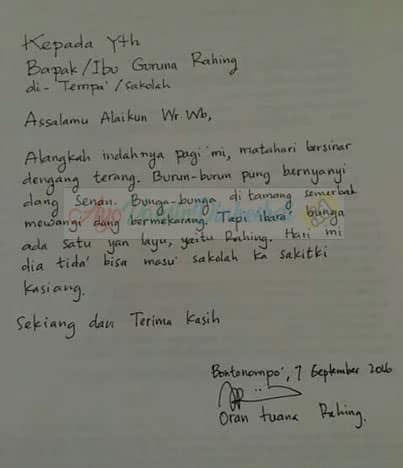 Kepada Yth
Bapak/Ibu Guruna Rahing
di- Tempa'/sakolah
Assalamu Alaikun Wr Wb,
Alangkah indahnya pagi'mi, matahari bersinar
dengang terang. Burun-burun pung bernyanyi
dang Senan. Bunga-bunga di tamang semerbak
mewangi dang bermekarang. Tapi ibara' bunga
ada satu yan layu, yaitu Rahing. Hari mi
dia tida' bisa masu' sakolah ka sakitki
kasiang.
Sekiang dan Terima Kasih
Bontonompo', 7 September 2016
Oran tuana Rahing.